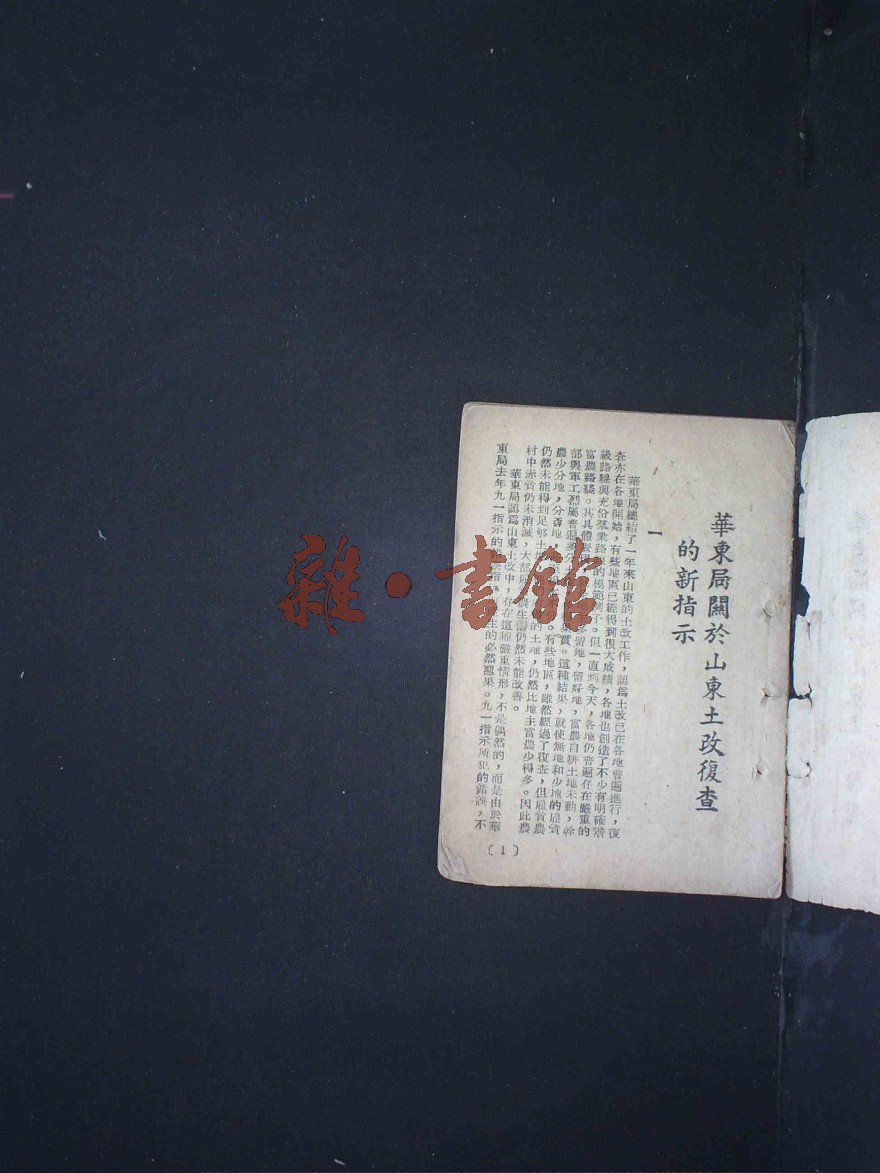 華東局關於山東土改復查
的新指示
一
華東局總結了一年來山東的土改工作，認爲土改已在各地普遍進行，復
查亦在各地開始，有些地區已經得到很大成績，各地也創造了不少有明確階
級路線與充份羣衆路線的模範例子。但一直到今天，各地仍普遍存在嚴重的
富農路綫。其具體表現 多留地，留好地，富農自耕土地未動，幹
部與軍工烈屬普遍多分 實。這種結果，就使無地和少地的雇貧
農少分地，分壞地， 。有些地區，雖然經過了復查，但雇貧農
仍然未能得到足够土地 的土地，仍然比地主富農少得多。因此農
村中赤貧仍未消滅，大部 農生活仍然未能改善。
華東局認爲山東土改中，存在這種嚴重情形，不是偶然的，而是由於華
東局去年九一指示的 指 產生的必然惡果。九一指示所犯的錯誤，不
(1)
雜·書館